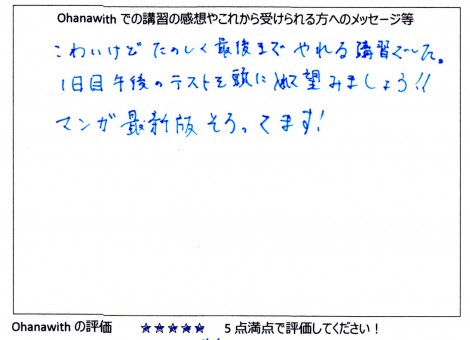 Ohanawith での講習の感想やこれから受けられる方へのメッセージ等
こわいけど たのしく最後まで やれる講習でした。
1日目午後のテストを頭に入れて望みましょう!!
マンガ最新版そろってます!
Ohanawith の評価 ★★★★★ 5点満点で評価してください！